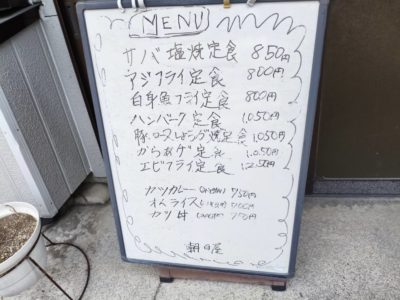 MENU
サバ塩焼定食 850円
アジフライ定食 800円
白身魚フライ定食 800円
ハンバーグ定食 1,050円
豚ロースしょうが焼定食 1,050円
からあげ定食 1,050円
エビフライ定食 1,250円
カツカレー 950円
オムライス
カツ丼
朝日屋